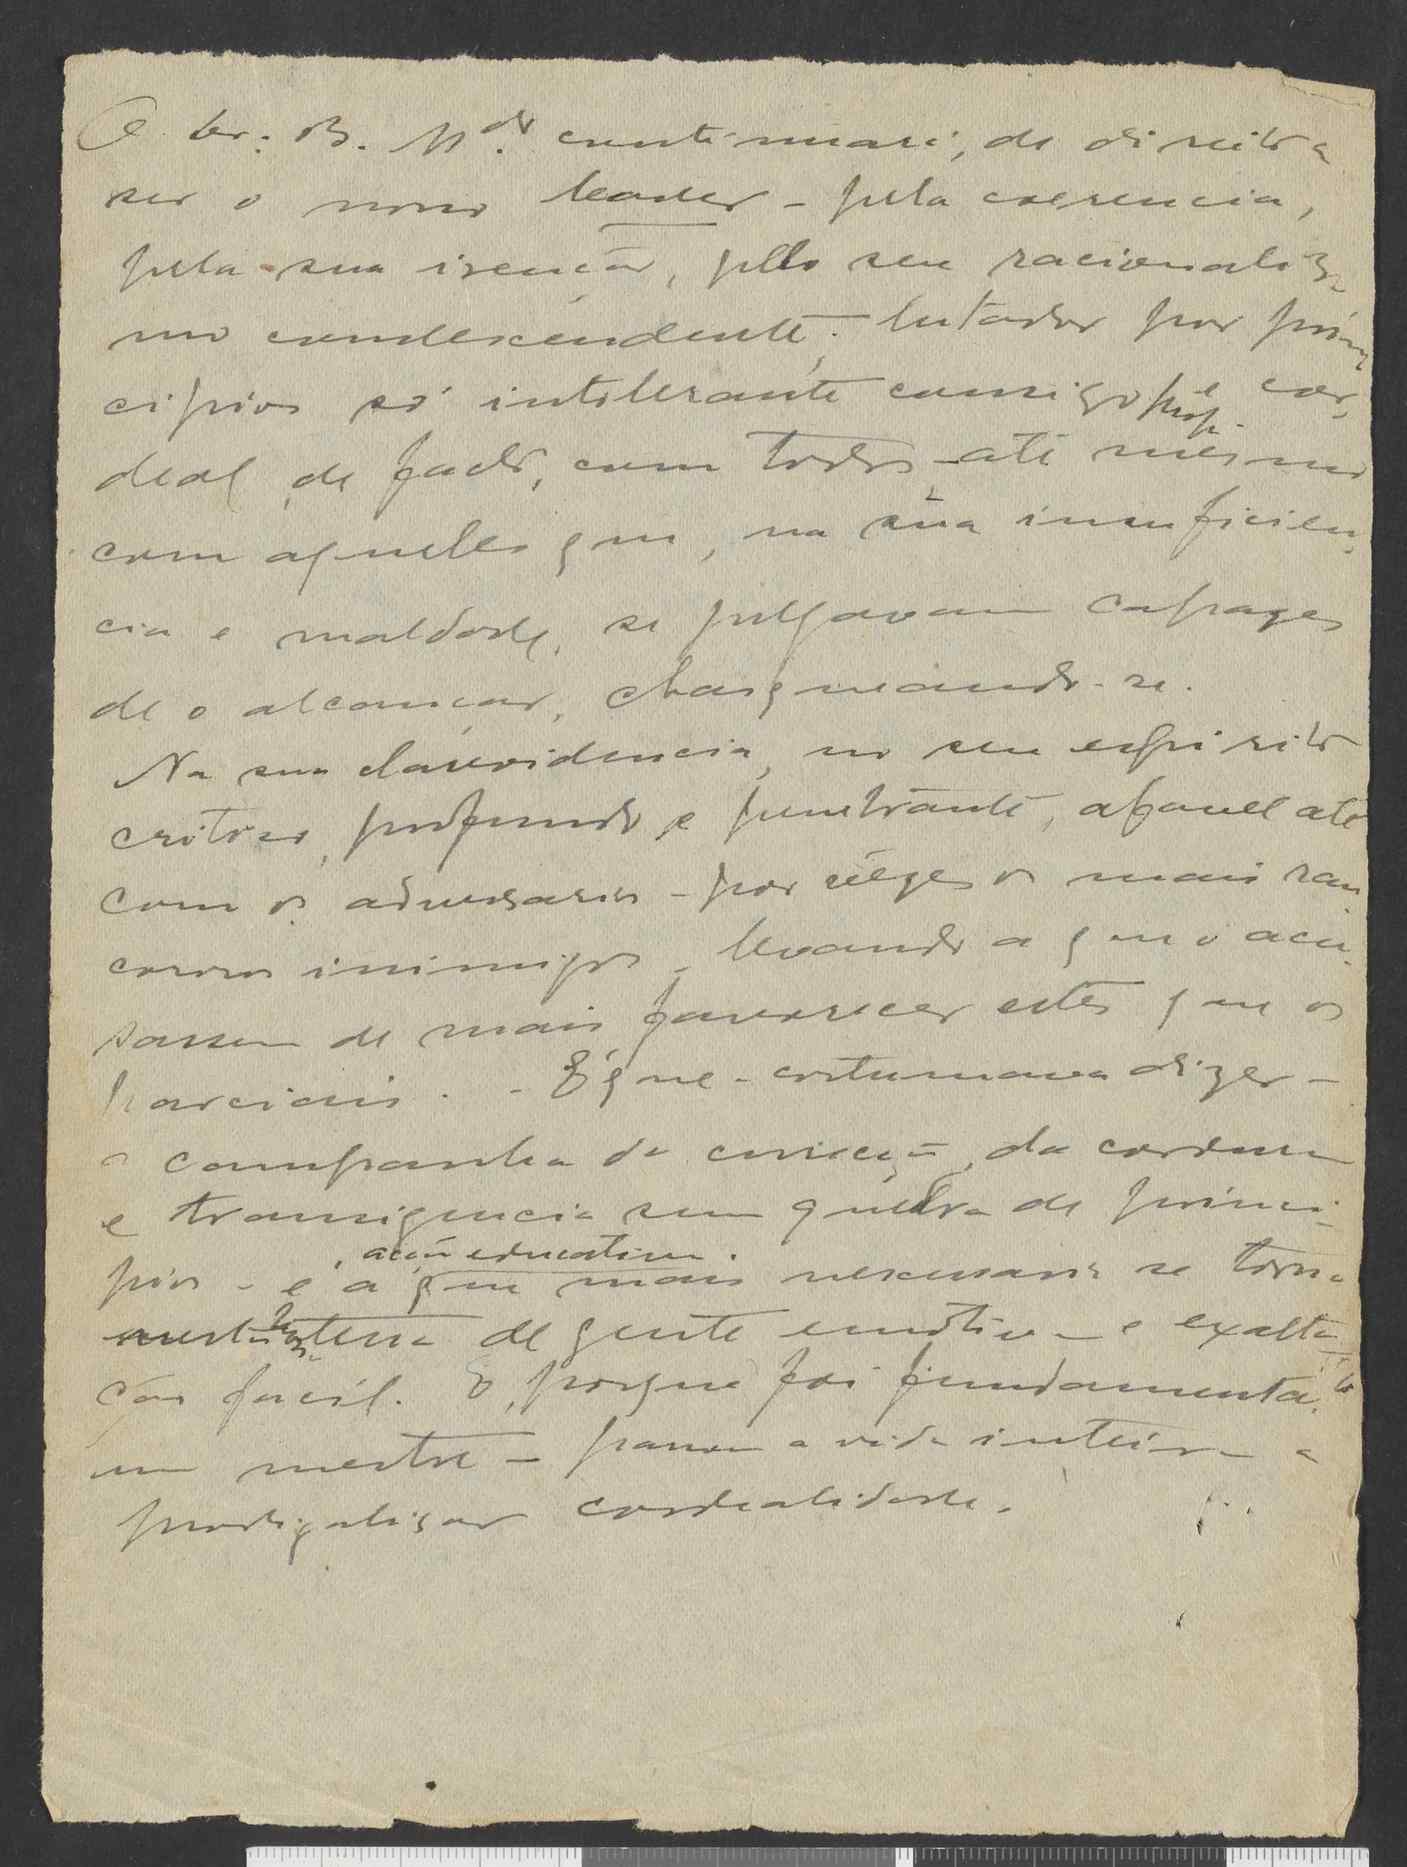 O Dr. B. M.do continuará, de direito a
ser o nosso leader - pela coerencia,
pela sua isenção, pelo seu racionalis-
mo condescendente; lutador por prin-
cipios só intolerante comsigo prop. e cor-
deal, de facto, com todos - até mesmo
com aqueles que, na sua insuficien-
cia e maldade, se julgavam capazes
de o alcançar, chasqueando-se.
Na sua clarividencia, no seu espirito
critico, profundo e penetrante, afavel até
com os adversarios - por vêzes os mais ran-
corosos inimigos, levando a que o acu-
sassem de mais favorecer estes que os
parciais. - E que - costumava dizer -
a campanha da correcção, da cordura
e transigencia sem quebra de princi-
pios - e a acção educativa que mais necessaria se torna
terra de gente emotiva e exalta-
ção facil. E, porque foi fundamental-
um mestre - passou a vida inteira a
prodigalisar cordealidade.